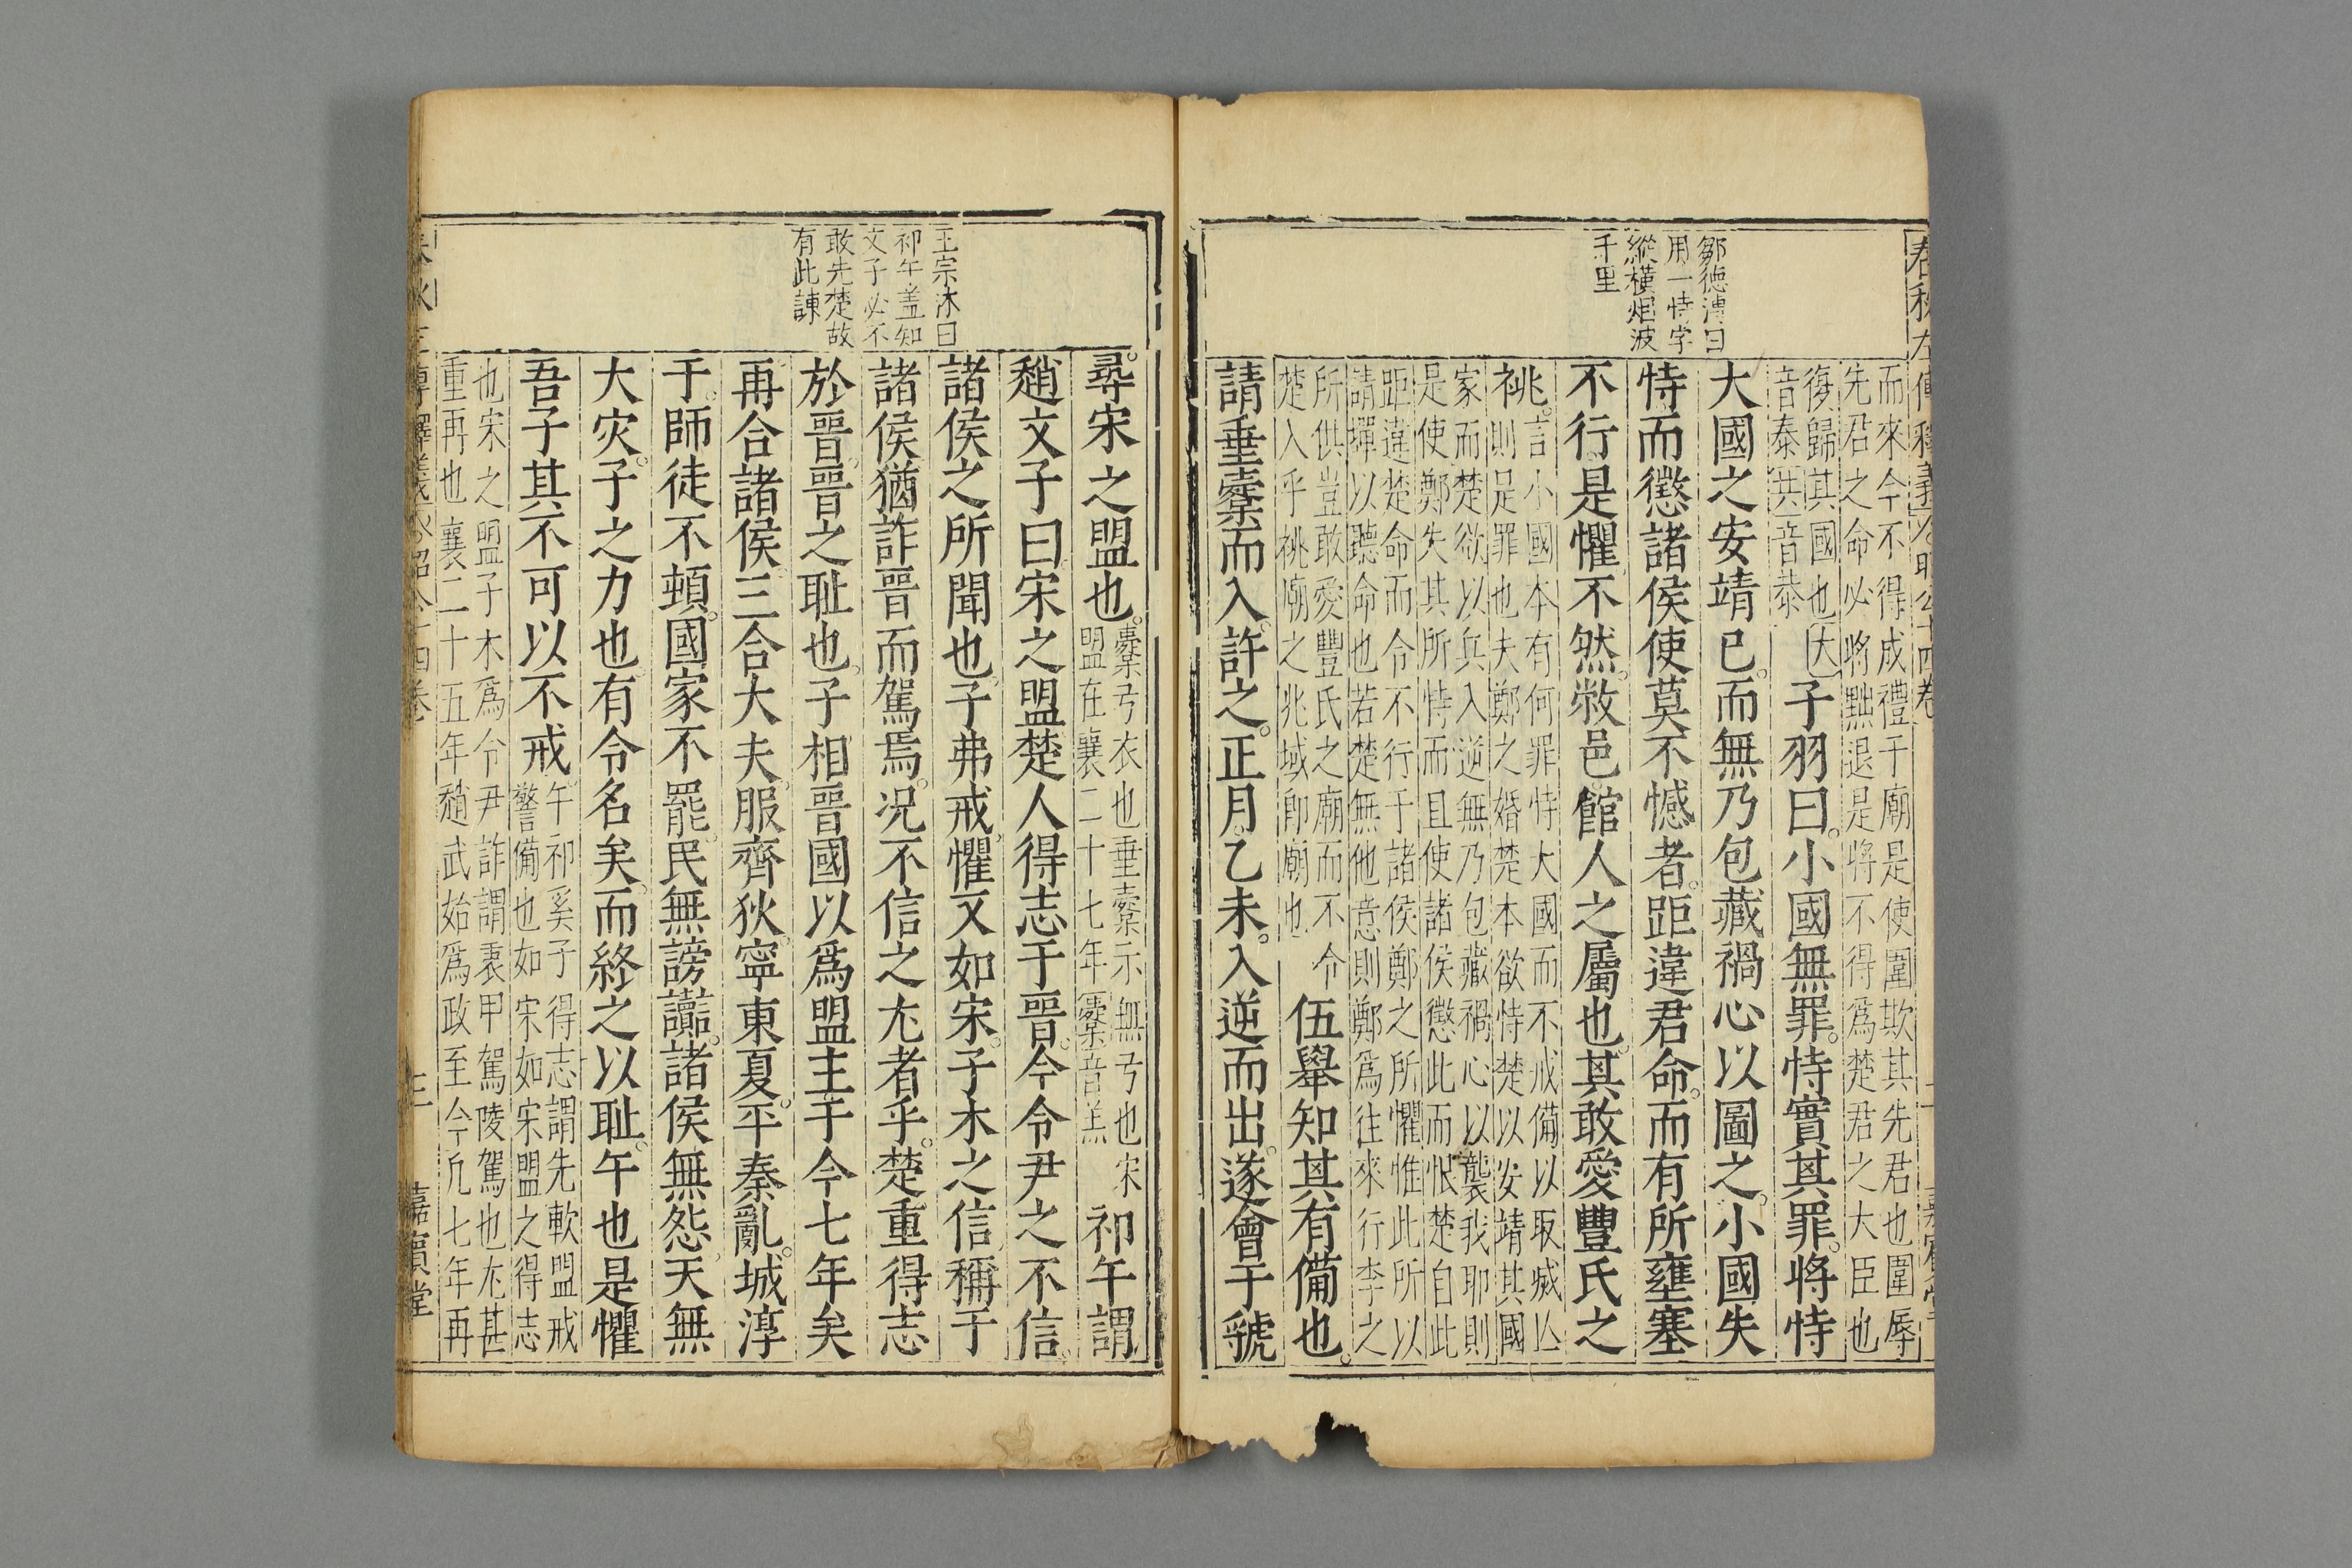 鄒德溥曰
用一恃字
縱橫烟波
千里
而來今不得成禮于廟是使圍欺其先君也圍辱
先君之命必將黜退是將不得爲楚君之大臣也
復歸其國也大
音泰共音恭
子羽曰小國無罪恃實其罪將恃
大國之安靖已而無乃包藏禍心以圖之小國失
恃而懲諸侯使莫不憾者距違君命而有所壅塞
不行是懼不然敝邑館人之屬也其敢愛豐氏之
祧
言小國本有何罪恃大國而不戒備以取滅亾
則足罪也夫鄭之婚楚本欲恃楚以安靖其國
家而楚欲以兵入逆無乃包藏禍心以襲我耶則
是使鄭失其所恃而且使諸侯懲此而恨楚自此
距違楚命而令不行于諸侯鄭之所懼惟此所以
請墠以聽命也若楚無他意則鄭爲往來行李之
所供豈敢愛豐氏之廟而不令
楚入乎祧廟之兆域卽廟也
伍舉知其有備也
請垂櫜而入許之正月乙未入逆而出遂會于虢
王宗沐曰
祁午盖知
文子必不
敢先楚故
有此諫
尋宋之盟也
櫜弓衣也垂櫜示無弓也宋
盟在襄二十七年櫜音羔
祁午謂
趙文子曰宋之盟楚人得志于晉今令尹之不信
諸侯之所聞也子弗戒懼又如宋子木之信稱于
諸侯猶詐晉而駕焉况不信之尤者乎楚重得志
於晉晉之耻也子相晉國以爲盟主于今七年矣
再合諸侯三合大夫服齊狄寧東夏平秦亂城淳
于師徒不頓國家不罷民無謗讟諸侯無怨天無
大灾子之力也有令名矣而終之以耻午也是懼
吾子其不可以不戒
午祁奚子得志謂先軟盟戒
警備也如宋如宋盟之得志
也宋之盟子木爲令尹詐謂衷甲駕陵駕也尤甚
重再也襄二十五年趙武始爲政至今凡七年再